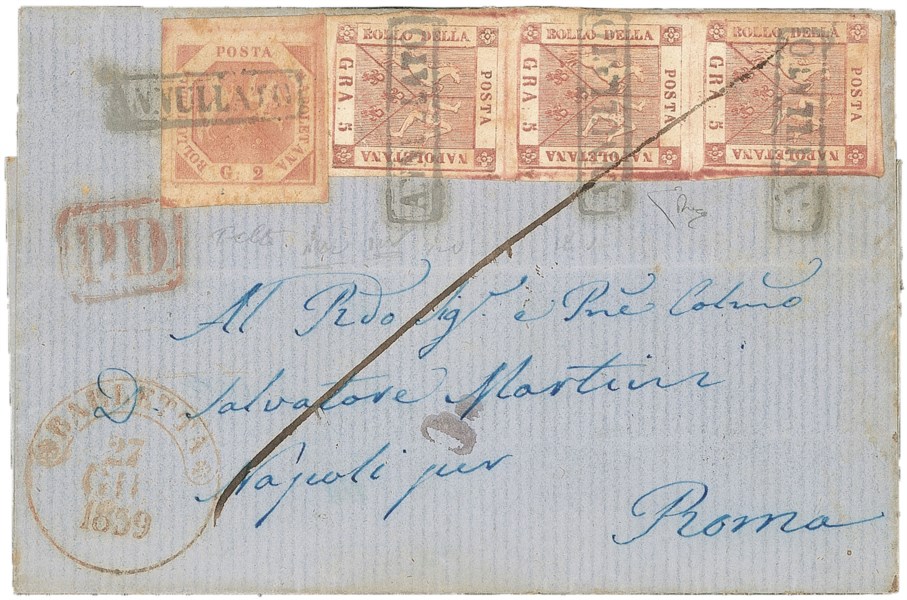 POSTA
NAPOLETANA
BOLLO
G. 2
BOLLO DELLA
POSTA
NAPOLETANA
GRA 5
BOLLO DELLA
POSTA
NAPOLETANA
GRA 5
BOLLO DELLA
POSTA
NAPOLETANA
GRA 5
ANNULLATO
ANNULLATO
ANNULLATO
ANNULLATO
P.D
Al Rdo Sigr e Pne Colmo
D. Salvatore Martini
Napoli per
Roma
BARLETTA
27
GIU
1859